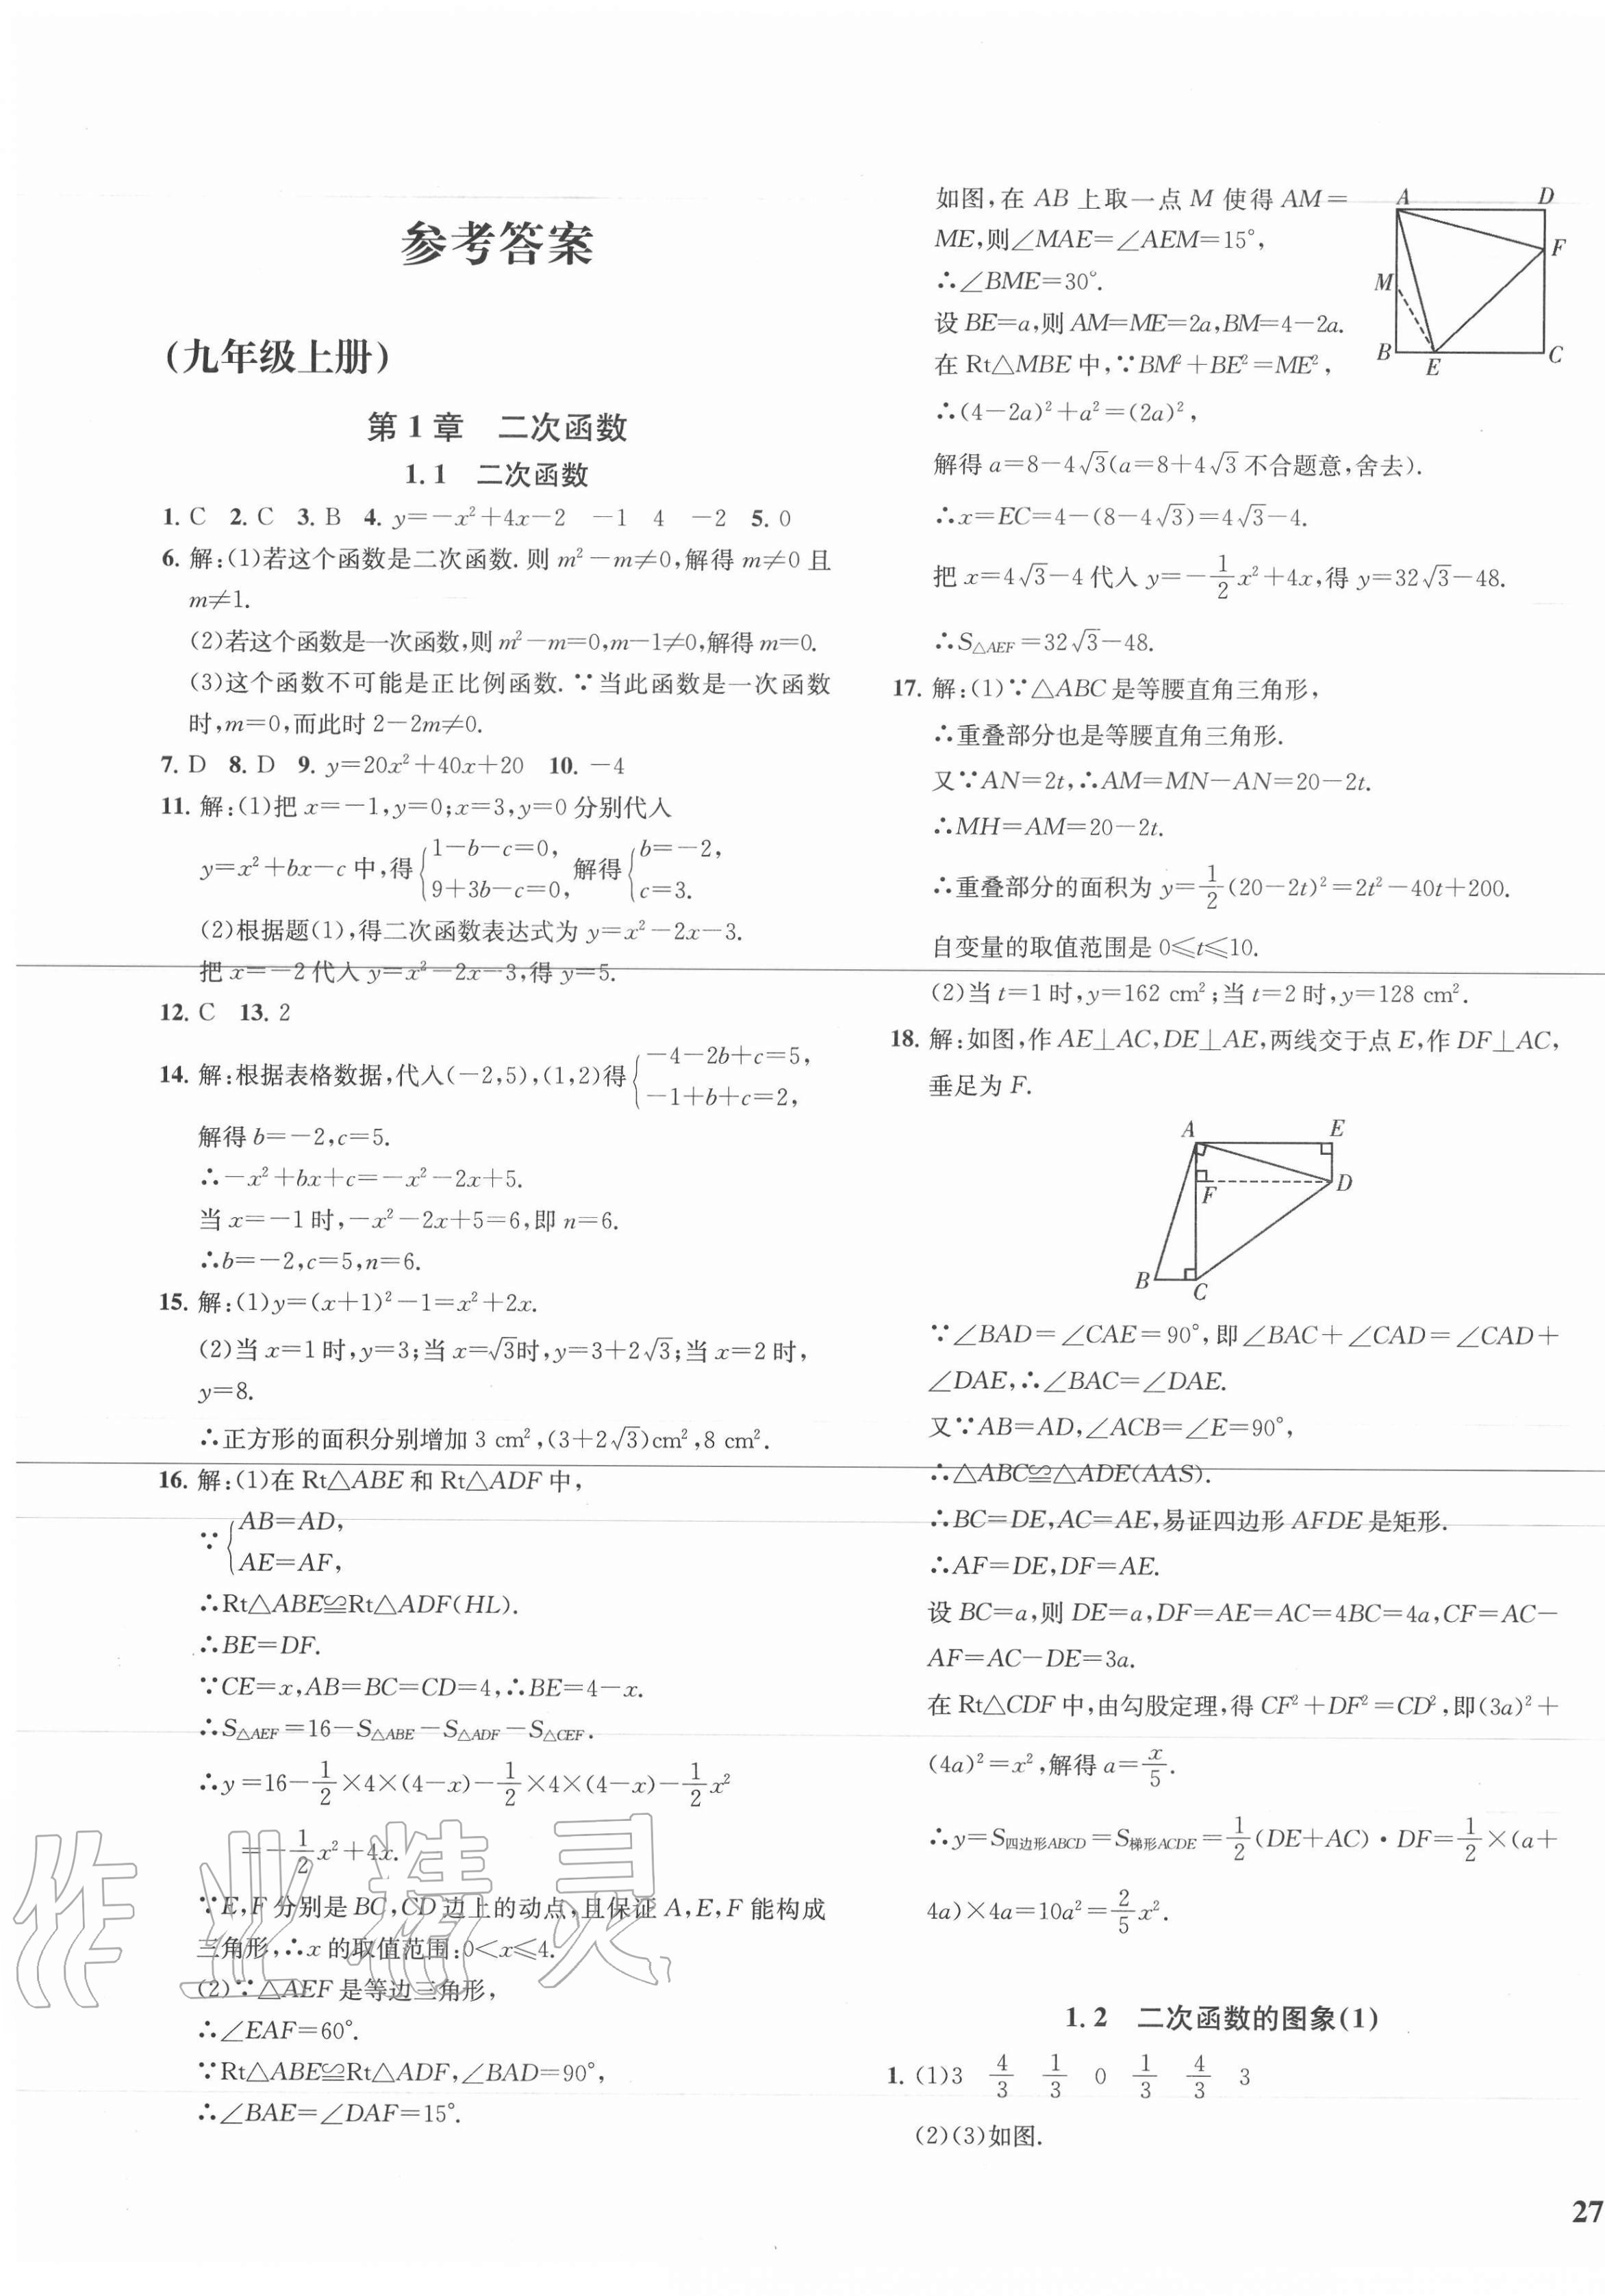 参考答案
(九年级上册)
第1章 二次函数
1.1 二次函数
1. C 2. C 3. B 4. y=-x²+4x-2 -1 4 -2 5. 0
6. 解:(1)若这个函数是二次函数.则 m²-m≠0,解得 m≠0 且
m≠1.
(2)若这个函数是一次函数,则 m²-m=0,m-1≠0,解得 m=0.
(3)这个函数不可能是正比例函数.∵当此函数是一次函数
时,m=0,而此时 2-2m≠0.
7. D 8. D 9. y=20x²+40x+20 10. -4
11. 解:(1)把 x=-1,y=0;x=3,y=0 分别代入
y=x²+bx-c 中,得{1-b-c=0, 9+3b-c=0, 解得{b=-2, c=3.
(2)根据题(1),得二次函数表达式为 y=x²-2x-3.
把 x=-2 代入 y=x²-2x-3,得 y=5.
12. C 13. 2
14. 解:根据表格数据,代入(-2,5),(1,2)得{-4-2b+c=5, -1+b+c=2,
解得 b=-2,c=5.
∴-x²+bx+c=-x²-2x+5.
当 x=-1 时,-x²-2x+5=6,即 n=6.
∴b=-2,c=5,n=6.
15. 解:(1)y=(x+1)²-1=x²+2x.
(2)当 x=1 时,y=3;当 x=√3时,y=3+2√3;当 x=2 时,
y=8.
∴正方形的面积分别增加 3 cm²,(3+2√3)cm²,8 cm².
16. 解:(1)在 Rt△ABE 和 Rt△ADF 中,
∵{AB=AD, AE=AF,
∴Rt△ABE≌Rt△ADF(HL).
∴BE=DF.
∵CE=x,AB=BC=CD=4,∴BE=4-x.
∴S△AEF=16-S△ABE-S△ADF-S△CEF.
∴y=16-1/2×4×(4-x)-1/2×4×(4-x)-1/2x²
=-1/2x²+4x.
∵E,F 分别是 BC,CD 边上的动点,且保证 A,E,F 能构成
三角形,∴x 的取值范围:0<x≤4.
(2)∵△AEF 是等边三角形,
∴∠EAF=60°.
∵Rt△ABE≌Rt△ADF,∠BAD=90°,
∴∠BAE=∠DAF=15°.
作业精灵
如图,在 AB 上取一点 M 使得 AM=
ME,则∠MAE=∠AEM=15°,
∴∠BME=30°.
设 BE=a,则 AM=ME=2a,BM=4-2a.
在 Rt△MBE 中,∵BM²+BE²=ME²,
∴(4-2a)²+a²=(2a)²,
A D
F
M
B E C
解得 a=8-4√3(a=8+4√3 不合题意,舍去).
∴x=EC=4-(8-4√3)=4√3-4.
把 x=4√3-4 代入 y=-1/2x²+4x,得 y=32√3-48.
∴S△AEF=32√3-48.
17. 解:(1)∵△ABC 是等腰直角三角形,
∴重叠部分也是等腰直角三角形.
又∵AN=2t,∴AM=MN-AN=20-2t.
∴MH=AM=20-2t.
∴重叠部分的面积为 y=1/2(20-2t)²=2t²-40t+200.
自变量的取值范围是 0≤t≤10.
(2)当 t=1 时,y=162 cm²;当 t=2 时,y=128 cm².
18. 解:如图,作 AE⊥AC,DE⊥AE,两线交于点 E,作 DF⊥AC,
垂足为 F.
A E
F D
B C
∵∠BAD=∠CAE=90°,即∠BAC+∠CAD=∠CAD+
∠DAE,∴∠BAC=∠DAE.
又∵AB=AD,∠ACB=∠E=90°,
∴△ABC≌△ADE(AAS).
∴BC=DE,AC=AE,易证四边形 AFDE 是矩形.
∴AF=DE,DF=AE.
设 BC=a,则 DE=a,DF=AE=AC=4BC=4a,CF=AC-
AF=AC-DE=3a.
在 Rt△CDF 中,由勾股定理,得 CF²+DF²=CD²,即(3a)²+
(4a)²=x²,解得 a=x/5.
∴y=S四边形ABCD=S梯形ACDE=1/2(DE+AC)·DF=1/2×(a+
4a)×4a=10a²=2/5x².
1.2 二次函数的图象(1)
1. (1)3 4/3 1/3 0 1/3 4/3 3
(2)(3)如图.
27